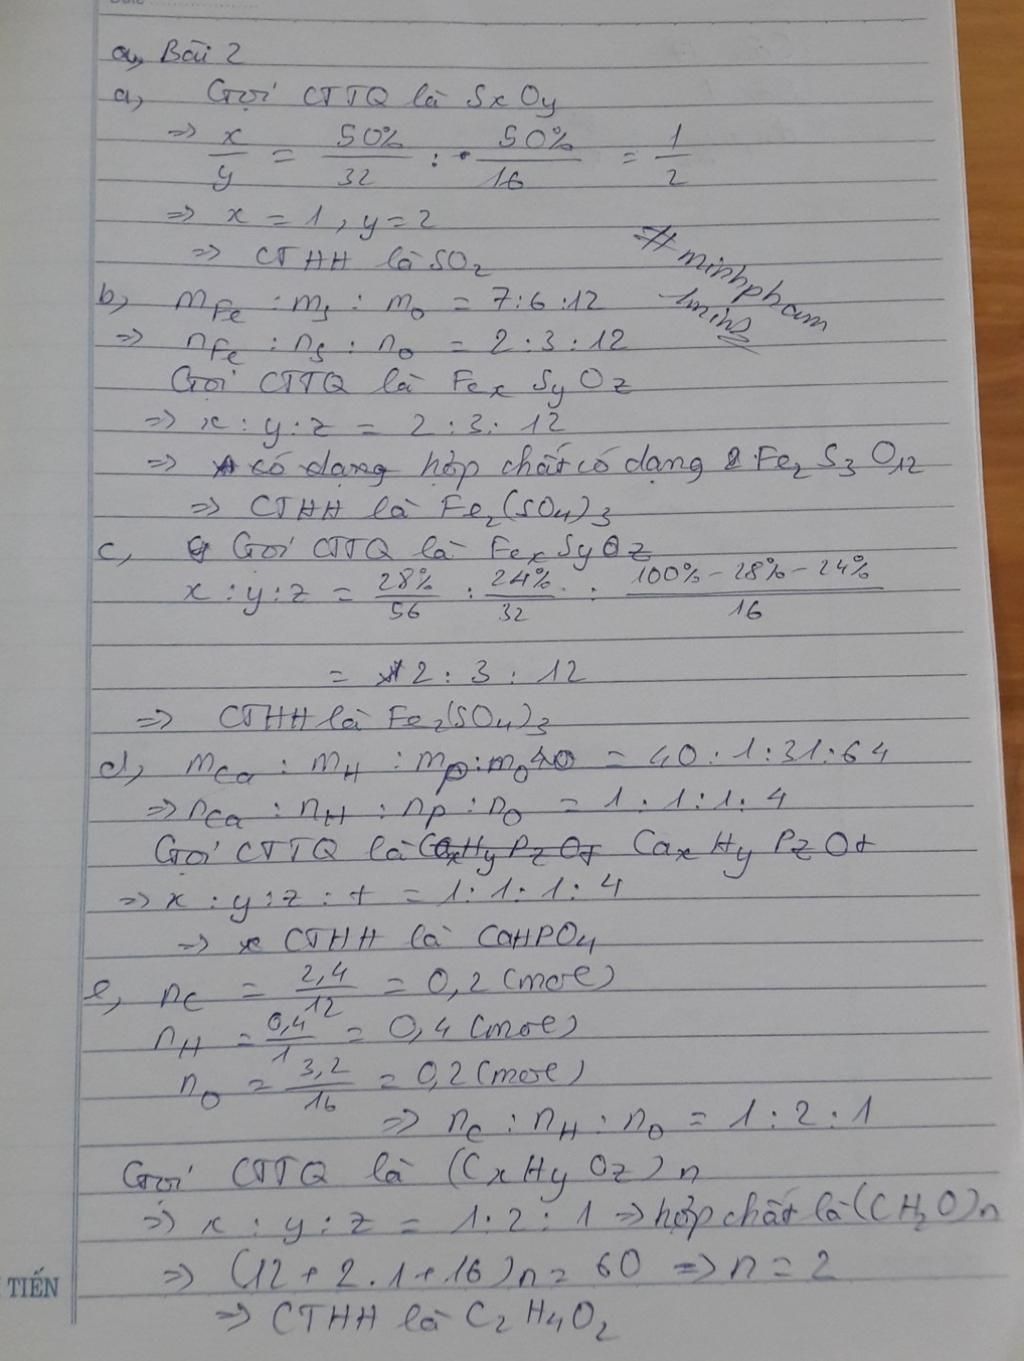 a, Bài 2
a, Gọi CTTQ là SxOy
=> x/y = 50%/32 : 50%/16 = 1/2
=> x = 1, y = 2
=> CTHH là SO2
#minhpham
b, mFe : mS : mO = 7:6:12
=> nFe : nS : nO = 2:3:12
Gọi CTTQ là FexSyOz
=> x:y:z = 2:3:12
=> có dạng hợp chất có dạng Fe2S3O12
=> CTHH là Fe2(SO4)3
c, Gọi CTTQ là FexSyOz
x:y:z = 28%/56 : 24%/32 : 100%-28%-24%/16
= 2:3:12
=> CTHH là Fe2(SO4)3
d, mCa : mH : mP : mO = 40:1:31:64
=> nCa : nH : nP : nO = 1:1:1:4
Gọi CTTQ là CaxHyPzOt CaxHyPzOt
=> x:y:z:t = 1:1:1:4
=> CTHH là CaHPO4
e, nC = 2,4/12 = 0,2 (mol)
nH = 0,4/1 = 0,4 (mol)
nO = 3,2/16 = 0,2 (mol)
=> nC : nH : nO = 1:2:1
Gọi CTTQ là (CxHyOz)n
=> x:y:z = 1:2:1 => hợp chất là (CH2O)n
=> (12+2.1+16)n = 60 => n = 2
=> CTHH là C2H4O2
TIẾN